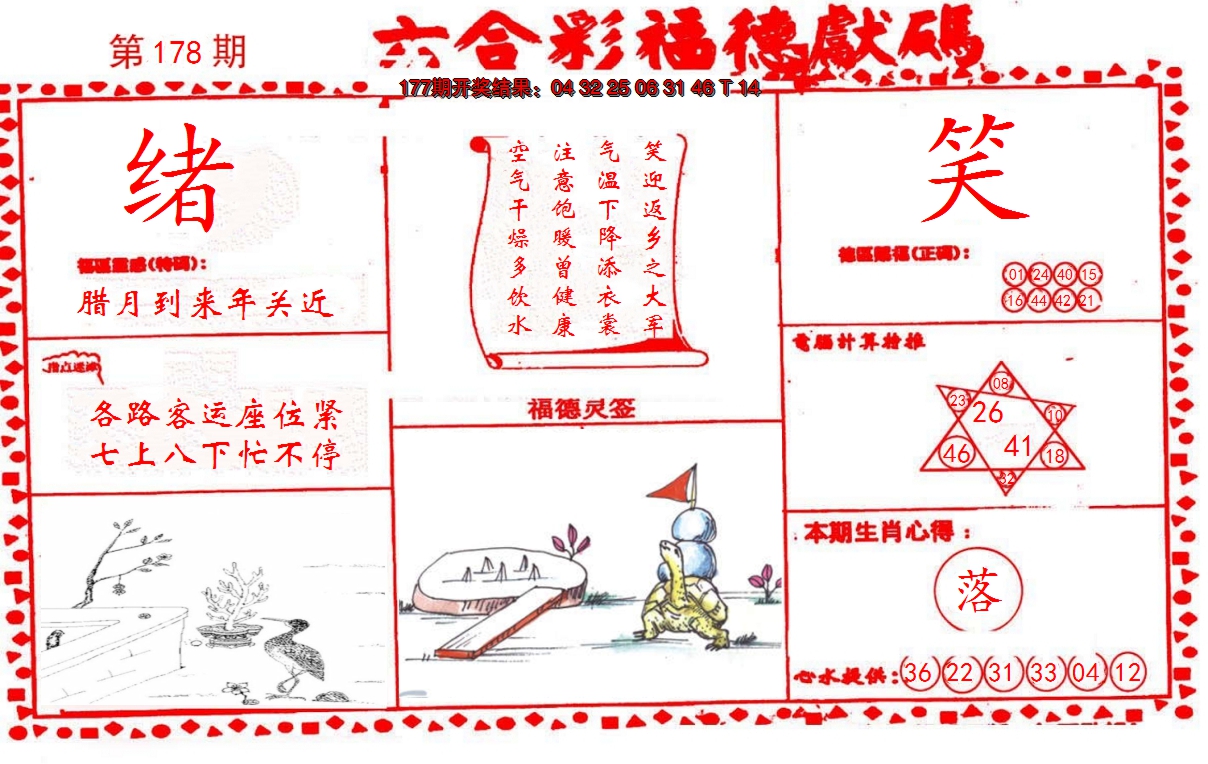 第178期
六合彩福德獻碼
177期开奖结果：04 32 25 06 31 46 T 14
绪
福區靈感(特碼)：
腊月到来年关近
指点迷津
各路客运座位紧
七上八下忙不停
笑迎返乡之大军
气温下降添衣裳
注意饱暖曾健康
空气干燥多饮水
福德灵签
笑
德區賜福(正碼)：
01 24 40 15
16 44 42 21
電腦計算推
08
23 26 10
46 41 18
32
本期生肖心得：
落
心水提供：36 22 31 33 04 12